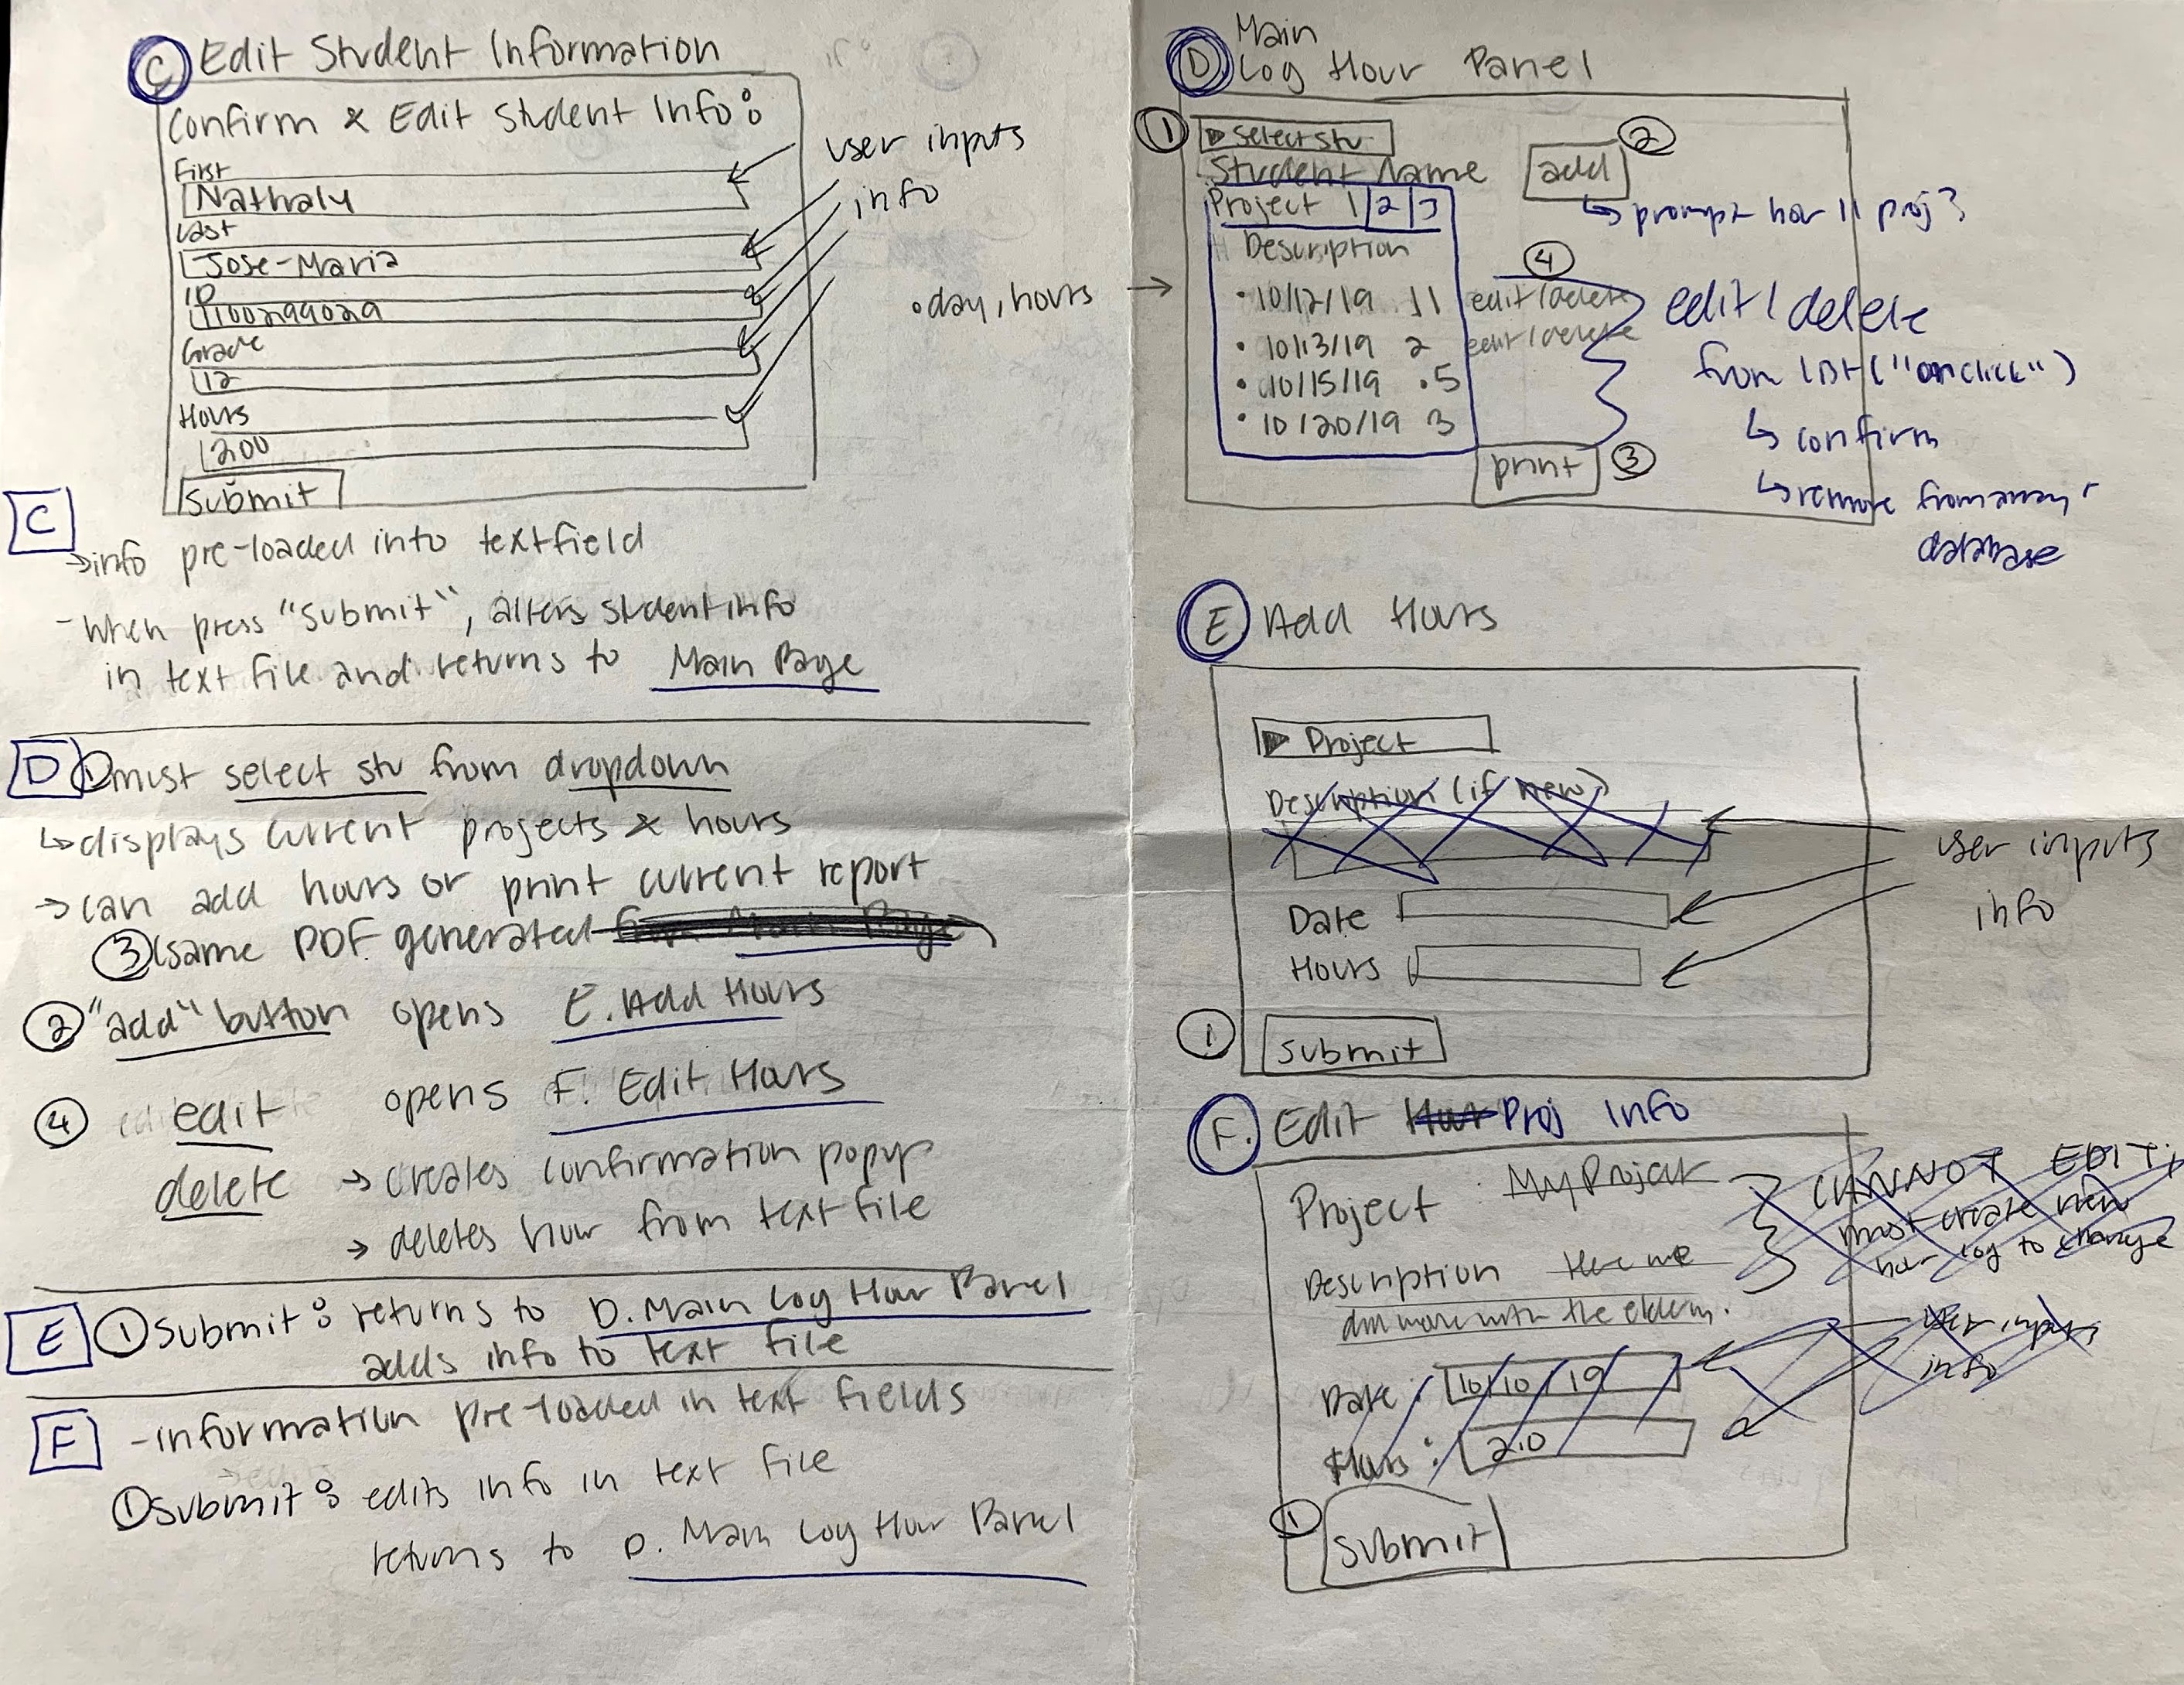 C Edit Student Information
Confirm & Edit Student Info:
First
Nathaly
Last
Jose-Maria
ID
Grade
12
Hours
200
Submit
user inputs
info
C
→info pre-loaded into textfield
- When press "Submit", alters student info
in text file and returns to Main Page
D ① must select stu from dropdown
↳ displays current projects & hours
→ can add hours or print current report
③ (same PDF generated from Main Page)
② "add" button opens E. Add Hours
④ edit opens F. Edit Hours
delete → creates confirmation popup
→ deletes hour from text file
E ① Submit: returns to D. Main Log Hour Panel
adds info to text file
F - information pre-loaded in text fields
① Submit: edits info in text file
returns to D. Main Log Hour Panel
D Main
Log Hour Panel
① ▶ Select stu
Student Name
add ②
Project 1 2 3
↳ prompt hour || proj?
Description
④
• day, hours →
• 10/12/19 11 edit/delete
• 10/13/19 2 edit/delete
• 10/15/19 .5
• 10/20/19 3
print ③
edit/delete
from list ("onclick")
↳ confirm
↳ remove from array
database
E Add Hours
▶ Project
Description (if new)
Date
Hours
user inputs
info
① Submit
F. Edit Hour Proj Info
Project MyProject
CANNOT EDIT;
must create new
hour log to change
Description
with the elderly.
Date: 10/10/19
Hours: 2.0
user inputs
info
① Submit